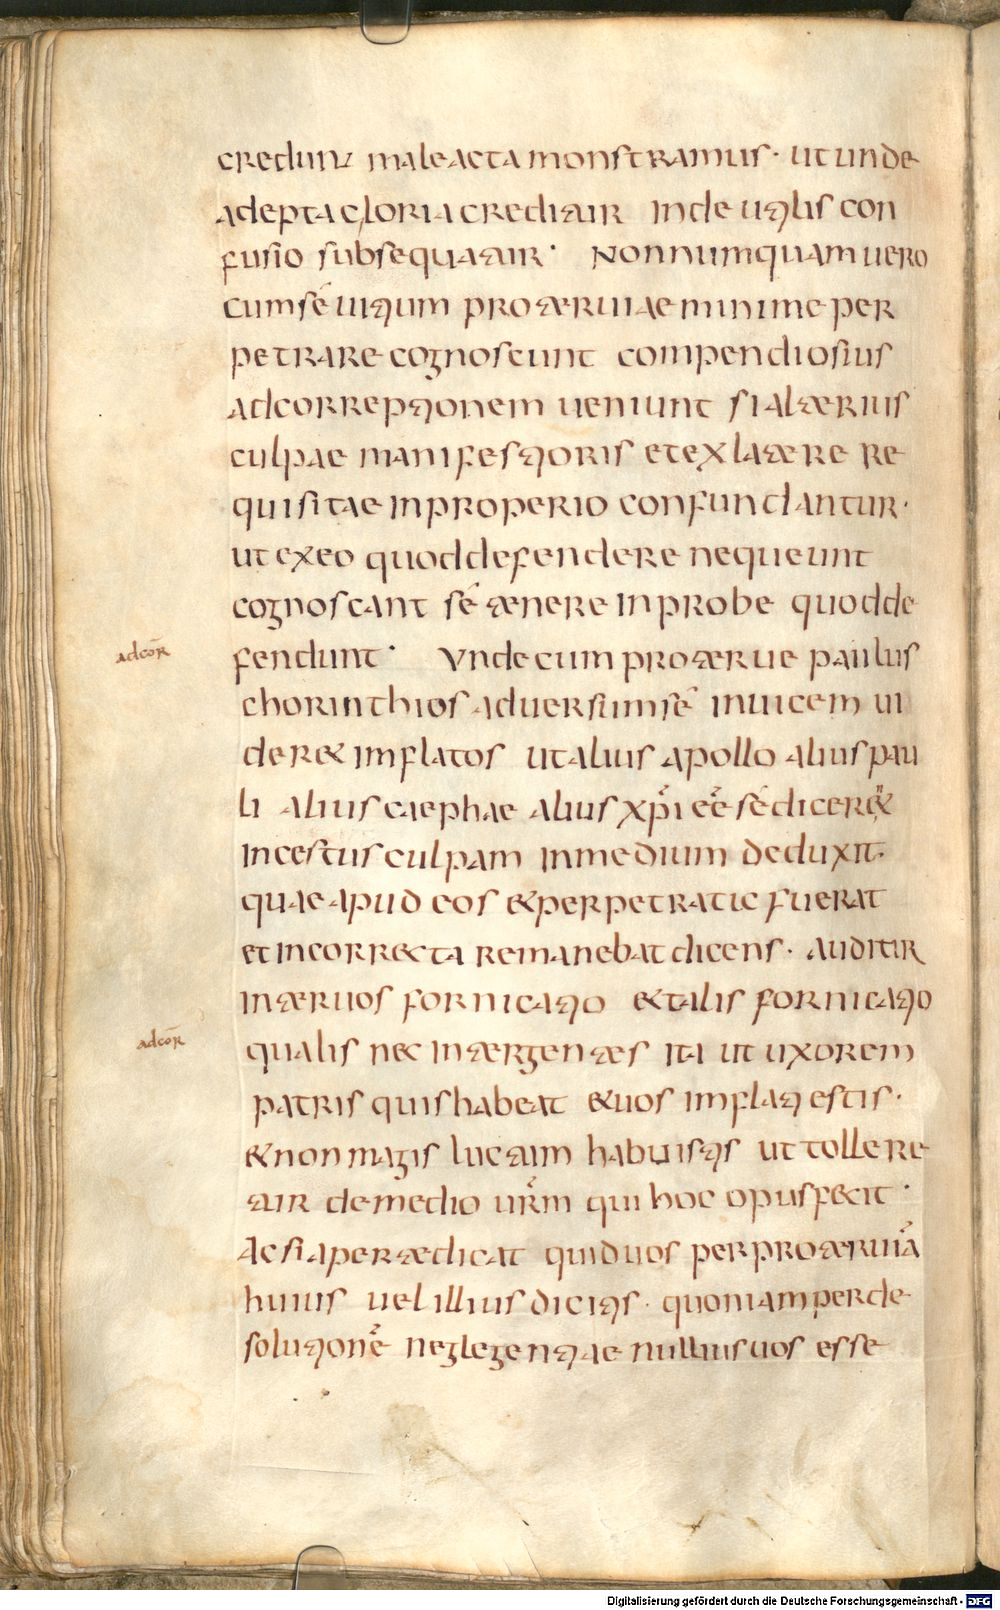 credunt male acta monstramus· ut unde
adepta gloria creditur inde utilis con
fusio subsequatur· Nonnumquam uero
cum sē uitium proteruiae minime per
petrare cognoscunt compendiosius
ad correptionem ueniunt si alterius
culpae manifestioris et ex latere re
quisitae inproperio confundantur·
ut ex eo quod defendere nequeunt
cognoscant sē tenere inprobe quod de
adcōr
fendunt· Unde cum proterue paulus
chorinthios aduersum sē inuicem ui
deret imflatos ut alius apollo alius pau
li alius caephae alius xp̄i eē sē diceret
incestus culpam in medium deduxit·
quae apud eos et perpetratic fuerat
et incorrecta remanebat dicens· Auditur
inter uos fornicatio et talis fornicatio
adcōr
qualis nec inter gentes ita ut uxorem
patris quis habeat et uos imflati estis·
et non magis luctum habuistis ut tollere
tur de medio ur̄m qui hoc opus fecit·
Ac si aperte dicat quid uos per proteruiā
huius uel illius dicitis· quoniam per de
solutionē neglegentiae nullius uos esse
Digitalisierung gefördert durch die Deutsche Forschungsgemeinschaft - DFG